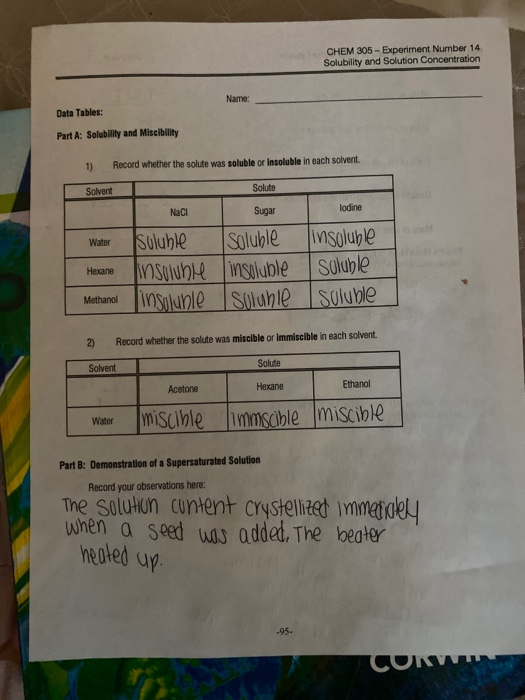 CHEM 305 – Experiment Number 14
Solubility and Solution Concentration
Name:
Data Tables:
Part A: Solubility and Miscibility
1) Record whether the solute was soluble or insoluble in each solvent.
Solvent Solute
NaCl Sugar Iodine
Water soluble soluble insoluble
Hexane insoluble insoluble soluble
Methanol insoluble soluble soluble
2) Record whether the solute was miscible or immiscible in each solvent.
Solvent Solute
Acetone Hexane Ethanol
Water miscible immscible miscible
Part B: Demonstration of a Supersaturated Solution
Record your observations here:
The solution content crystellized immediately
when a seed was added. The beater
heated up.
-95-
CORWIN